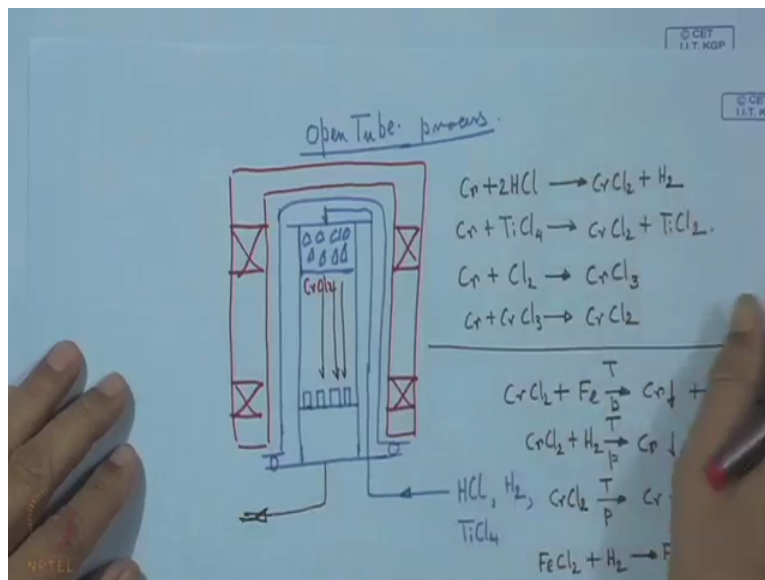 © CET
I.I.T. KGP
© CET
I.I.T. K
Open Tube process.
Cr + 2HCl → CrCl2 + H2
Cr + TiCl4 → CrCl2 + TiCl2.
Cr + Cl2 → CrCl3
Cr + CrCl3 → CrCl2
CrCl2
CrCl2 + Fe T → P Cr↓ +
CrCl2 + H2 T → P Cr↓
CrCl2 T → P Cr
FeCl2 + H2 → F
HCl, H2,
TiCl4
NPTEL